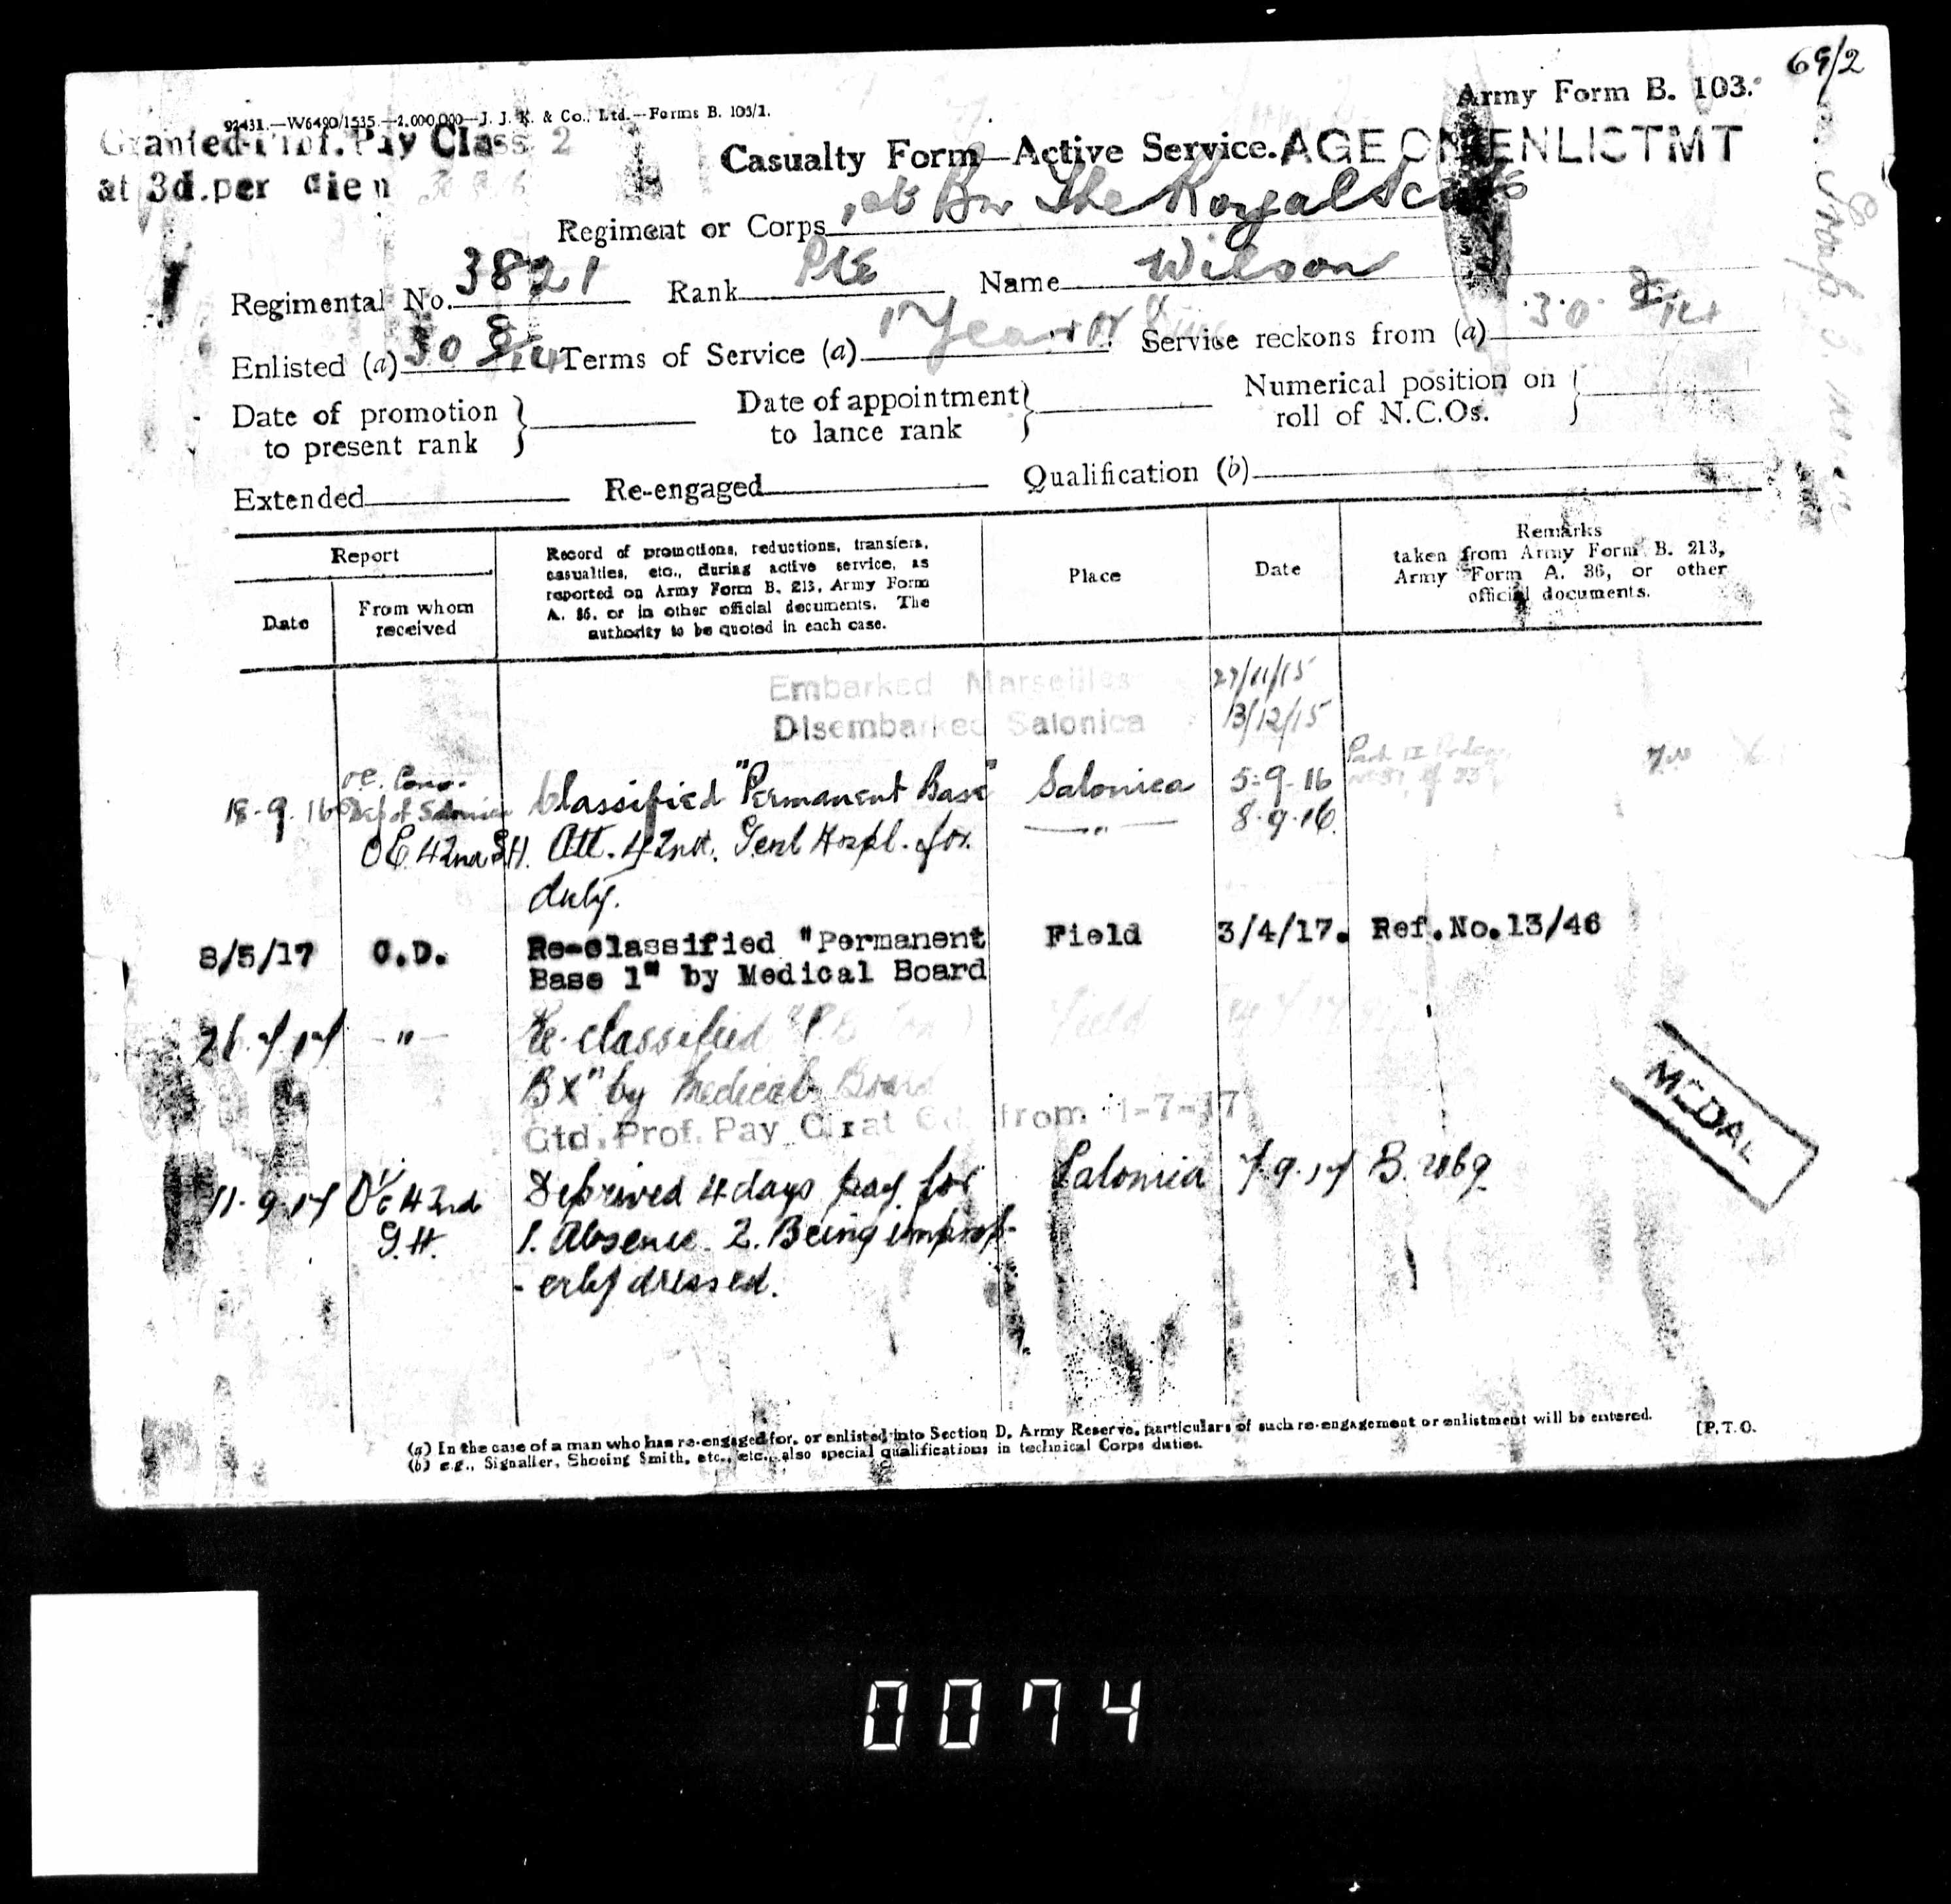 69/2
92431.—W6490/1535.—2,000,000—J. J. K. & Co., Ltd.—Forms B. 103/1.
Army Form B. 103.
Granted Prof. Pay Class 2
at 3d. per diem
Casualty Form—Active Service.
AGE ON ENLISTMT
Regiment or Corps Bn The Royal Scots
Regimental No. 3821 Rank Pte Name Wilson
Enlisted (a) 30 8/14 Terms of Service (a) 1 Year or Service reckons from (a) 30 8/14
Date of promotion to present rank } Date of appointment to lance rank } Numerical position on roll of N.C.Os. }
Extended Re-engaged Qualification (b)
Report
Date
From whom received
Record of promotions, reductions, transfers,
casualties, etc., during active service, as
reported on Army Form B. 213, Army Form
A. 36, or in other official documents. The
authority to be quoted in each case.
Place
Date
Remarks
taken from Army Form B. 213,
Army Form A. 36, or other
official documents.
Embarked Marseilles 27/11/15
Disembarked Salonica 13/12/15
18-9-16 Depot Salonica Classified "Permanent Base" Salonica 5-9-16
42nd G.H. Att. 42nd. Genl Hospl. for —"— 8-9-16.
duty.
8/5/17 C.D. Re-classified "Permanent Field 3/4/17. Ref.No.13/46
Base 1" by Medical Board
26.7.17 —"— Re-classified "P.B. Field
BX" by Medical Board
Gtd. Prof. Pay from 1-7-17
11-9-17 O/C 42nd Deprived 4 days pay for Salonica 7.9.17 B.
G.H. 1. Absence. 2. Being improp-
-erly dressed.
MEDAL
(a) In the case of a man who has re-engaged for, or enlisted into Section D, Army Reserve, particulars of such re-engagement or enlistment will be entered.
(b) e.g., Signaller, Shoeing Smith, etc., etc., also special qualifications in technical Corps duties.
[P.T.O.
0074